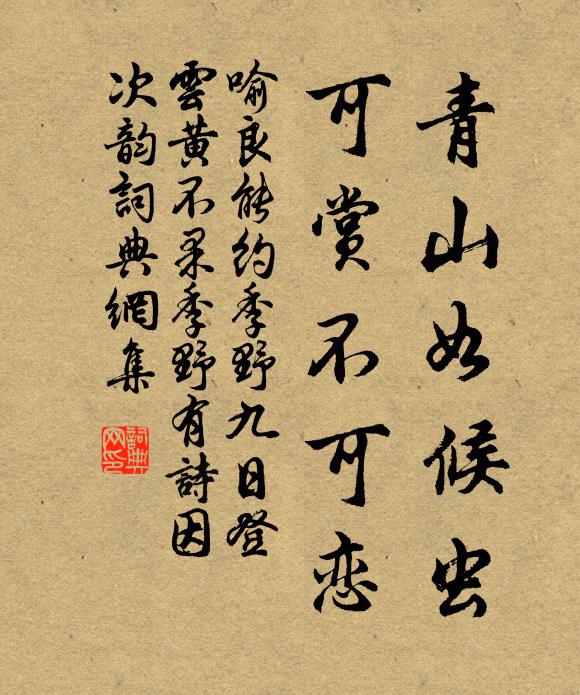 青山如候虫
可賞不可恋
喻良能約季野九日登
雲黄不果季野有詩因
次韵詞典網集
詞典网印